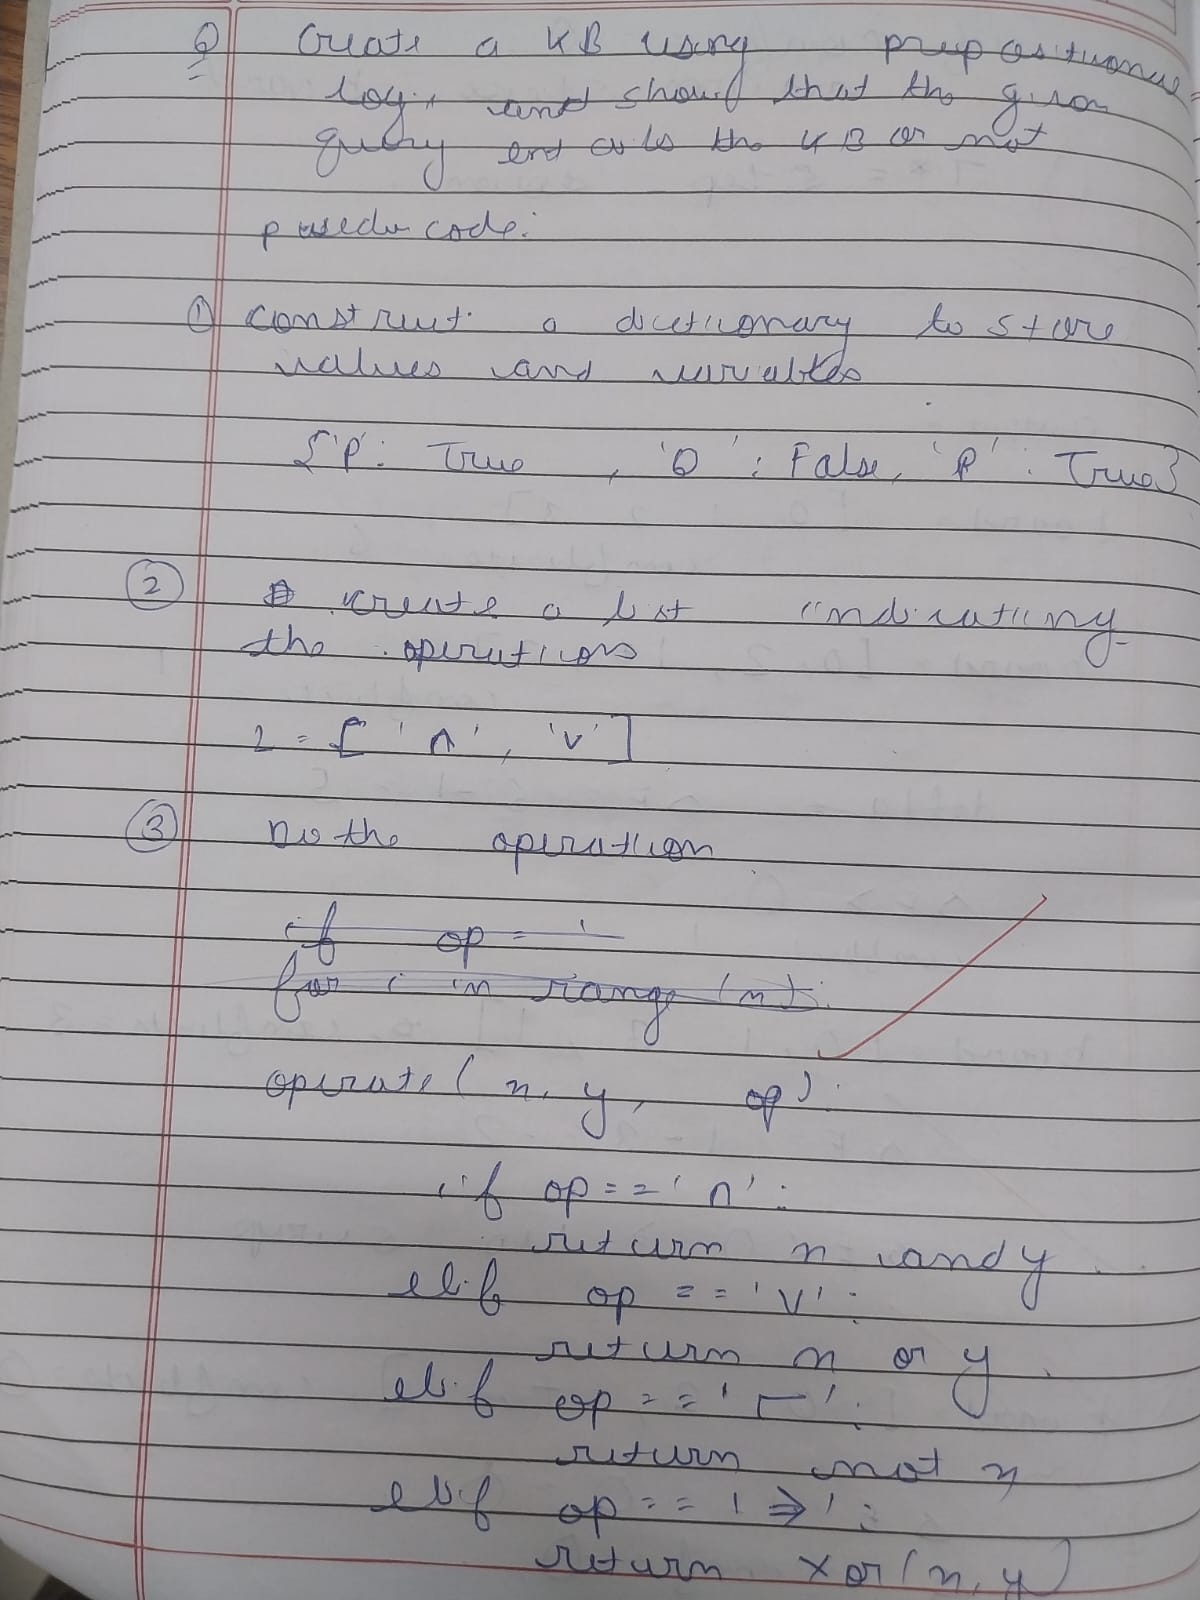 Q Create a KB using prepositional
logic and show that the given
query entails the KB or not
pusedu code:
① construct a dictionary to store
values and variables
{'P': True, 'Q': False, 'R': True}
② create a list indicating
the operations
L = ['∧', '∨']
③ Do the operation
if op =
for i in range (n):
operate (x, y, op):
if op == '∧':
return x and y
elif op == '∨':
return x or y
elif op == '¬':
return not x
elif op == '⇒':
return xor(x, y)